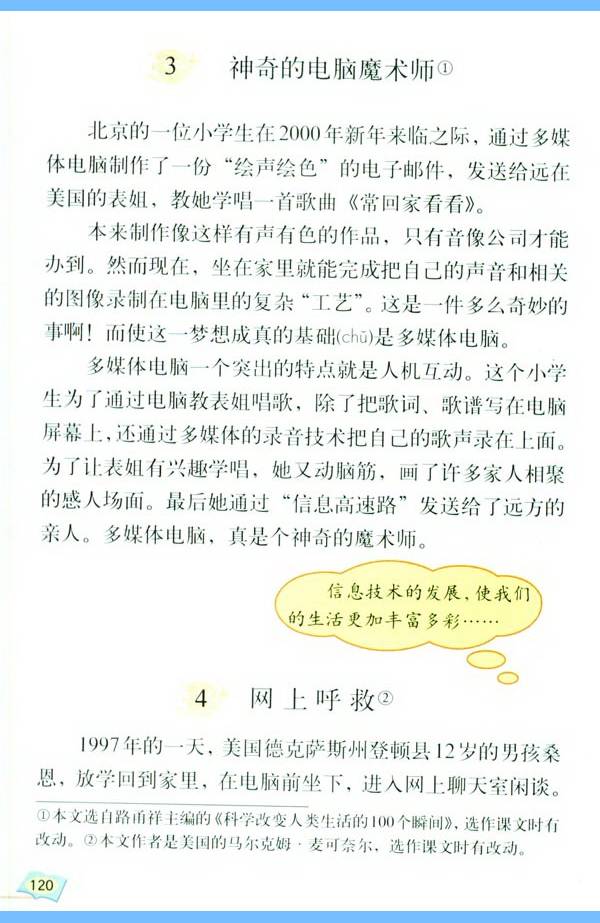 3 神奇的电脑魔术师①
北京的一位小学生在2000年新年来临之际，通过多媒
体电脑制作了一份“绘声绘色”的电子邮件，发送给远在
美国的表姐，教她学唱一首歌曲《常回家看看》。
本来制作像这样有声有色的作品，只有音像公司才能
办到。然而现在，坐在家里就能完成把自己的声音和相关
的图像录制在电脑里的复杂“工艺”。这是一件多么奇妙的
事啊！而使这一梦想成真的基础(chǔ)是多媒体电脑。
多媒体电脑一个突出的特点就是人机互动。这个小学
生为了通过电脑教表姐唱歌，除了把歌词、歌谱写在电脑
屏幕上，还通过多媒体的录音技术把自己的歌声录在上面。
为了让表姐有兴趣学唱，她又动脑筋，画了许多家人相聚
的感人场面。最后她通过“信息高速路”发送给了远方的
亲人。多媒体电脑，真是个神奇的魔术师。
信息技术的发展，使我们
的生活更加丰富多彩……
4 网上呼救②
1997年的一天，美国德克萨斯州登顿县12岁的男孩桑
恩，放学回到家里，在电脑前坐下，进入网上聊天室闲谈。
①本文选自路甬祥主编的《科学改变人类生活的100个瞬间》，选作课文时有
改动。②本文作者是美国的马尔克姆·麦可奈尔，选作课文时有改动。
120